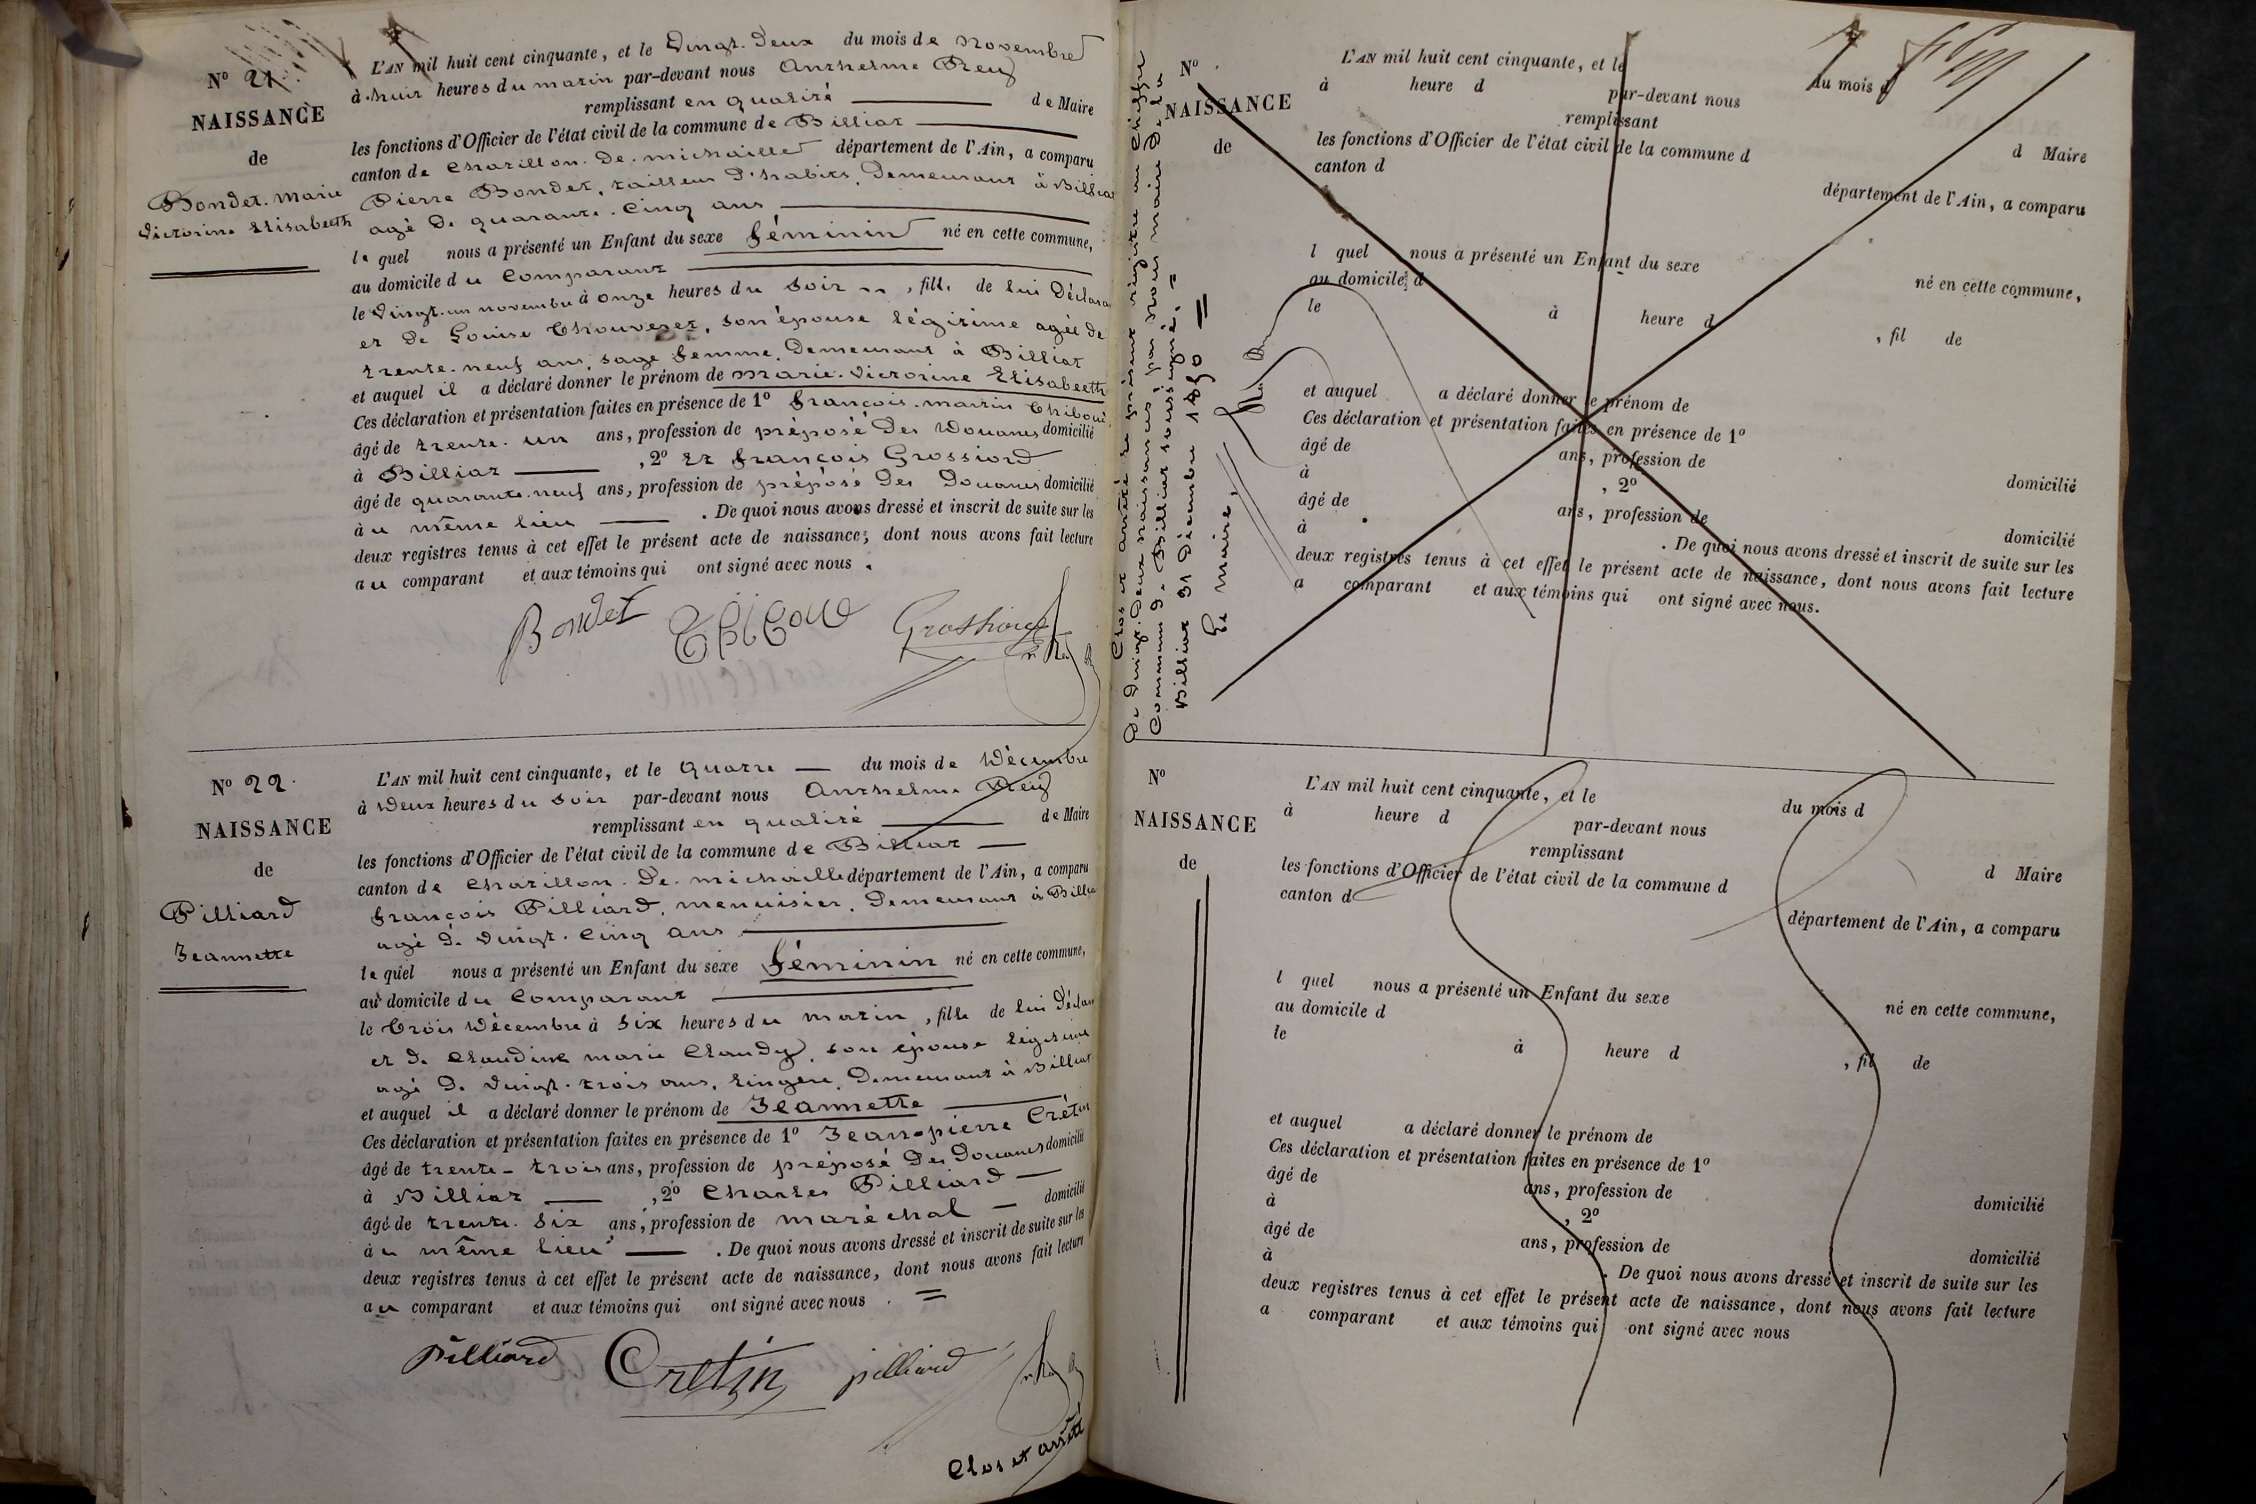 N° 21.
NAISSANCE
de
Bondet. Marie
Victorine Elisabeth
L'AN mil huit cent cinquante, et le vingt-deux du mois de novembre
à huit heures du matin par-devant nous Anthelme Rey
remplissant en qualité de Maire
les fonctions d'Officier de l'état civil de la commune de Billiat
canton de Chatillon-de-michaille département de l'Ain, a comparu
Pierre Bondet, tailleur d'habits, demeurant à Billiat
agé de quarante-cinq ans
lequel nous a présenté un Enfant du sexe féminin né en cette commune,
au domicile du comparant
le vingt-un novembre à onze heures du soir, fille de lui Déclarant
et de Louise, son épouse légitime agée de
trente-neuf ans, sage femme, demeurant à Billiat
et auquel il a déclaré donner le prénom de marie-victorine Elisabeeth
Ces déclaration et présentation faites en présence de 1° françois-martin
âgé de trente-un ans, profession de préposé des Douanes domicilié
à Billiat, 2° et françois Grossiord
âgé de quarante-neuf ans, profession de préposé des Douanes domicilié
au même lieu. De quoi nous avons dressé et inscrit de suite sur les
deux registres tenus à cet effet le présent acte de naissance; dont nous avons fait lecture
au comparant et aux témoins qui ont signé avec nous.
Bondet Grossiord
N° 22.
NAISSANCE
de
Pilliard
Jeannette
L'AN mil huit cent cinquante, et le quatre du mois de Décembre
à Deux heures du soir par-devant nous Anthelme Rey
remplissant en qualité de Maire
les fonctions d'Officier de l'état civil de la commune de Billiat
canton de Chatillon-de-michaille département de l'Ain, a comparu
françois Pilliard, menuisier, demeurant à Billiat
agé de vingt-cinq ans
lequel nous a présenté un Enfant du sexe féminin né en cette commune,
au domicile du comparant
le trois Décembre à six heures du matin, fille de lui Déclarant
et de Claudine marie Claudy, son épouse légitime
agé de vingt-trois ans, lingère, demeurant à Billiat
et auquel il a déclaré donner le prénom de Jeannette
Ces déclaration et présentation faites en présence de 1° Jean-pierre Crétin
âgé de trente-trois ans, profession de préposé des Douanes domicilié
à Billiat, 2° Charles Pilliard
âgé de trente-six ans, profession de maréchal domicilié
au même lieu. De quoi nous avons dressé et inscrit de suite sur les
deux registres tenus à cet effet le présent acte de naissance, dont nous avons fait lecture
au comparant et aux témoins qui ont signé avec nous.
pilliard Cretin pilliard
Clos et arrêté
Clos et arrêté le présent registre au chiffre
De vingt-deux naissances, par nous maire de la
Commune de Billiat soussigné,
Billiat 31 Décembre 1850
Le maire,
N°
NAISSANCE
de
L'AN mil huit cent cinquante, et le du mois d
à heure d par-devant nous
remplissant d Maire
les fonctions d'Officier de l'état civil de la commune d
canton d département de l'Ain, a comparu
l quel nous a présenté un Enfant du sexe né en cette commune,
au domicile d
le à heure d, fil de
et auquel a déclaré donner le prénom de
Ces déclaration et présentation faites en présence de 1°
âgé de ans, profession de domicilié
à, 2°
âgé de ans, profession de domicilié
à. De quoi nous avons dressé et inscrit de suite sur les
deux registres tenus à cet effet le présent acte de naissance, dont nous avons fait lecture
a comparant et aux témoins qui ont signé avec nous.
N°
NAISSANCE
de
L'AN mil huit cent cinquante, et le du mois d
à heure d par-devant nous
remplissant d Maire
les fonctions d'Officier de l'état civil de la commune d
canton d département de l'Ain, a comparu
l quel nous a présenté un Enfant du sexe né en cette commune,
au domicile d
le à heure d, fil de
et auquel a déclaré donner le prénom de
Ces déclaration et présentation faites en présence de 1°
âgé de ans, profession de domicilié
à, 2°
âgé de ans, profession de domicilié
à. De quoi nous avons dressé et inscrit de suite sur les
deux registres tenus à cet effet le présent acte de naissance, dont nous avons fait lecture
a comparant et aux témoins qui ont signé avec nous